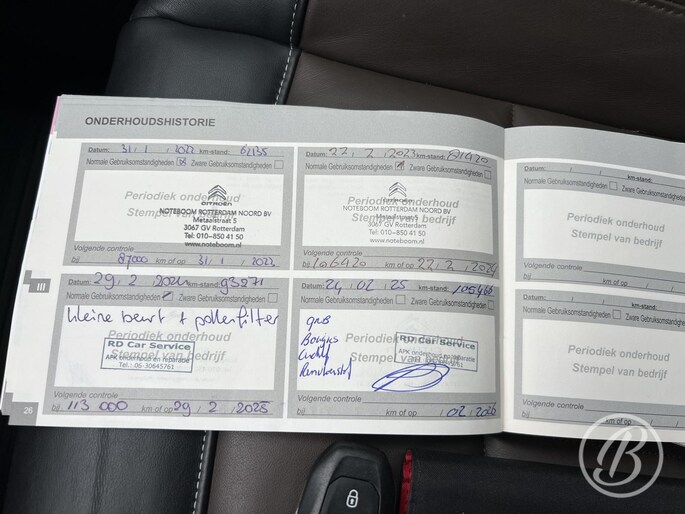 ONDERHOUDSHISTORIE
Datum: 31 / 1 / 2022 km-stand:
Normale Gebruiksomstandigheden Zware Gebruiksomstandigheden
Periodiek onderhoud
Stempel van bedrijf
CITROËN
NOTEBOOM ROTTERDAM NOORD BV
Metaalstraat 5
3067 GV Rotterdam
Tel: 010-850 41 50
www.noteboom.nl
Volgende controle
bij 87000 km of op 31 / 1 / 2022
Datum: 22 / 2 / 2023 km-stand: 81420
Normale Gebruiksomstandigheden Zware Gebruiksomstandigheden
Periodiek onderhoud
Stempel van bedrijf
CITROËN
NOTEBOOM ROTTERDAM NOORD BV
Metaalstraat 5
3067 GV Rotterdam
Tel: 010-850 41 50
www.noteboom.nl
Volgende controle
bij 106420 km of op 22 / 2 / 2024
III
Datum: 29 / 2 / 2024 km-stand: 93871
Normale Gebruiksomstandigheden Zware Gebruiksomstandigheden
kleine beurt + pollenfilter
Periodiek onderhoud
Stempel van bedrijf
RD Car Service
APK onderhoud en reparatie
Tel.: 06-30645761
Volgende controle
bij 113 000 km of op 29 / 2 / 2025
Datum: 24 / 02 / 25 km-stand:
Normale Gebruiksomstandigheden Zware Gebruiksomstandigheden
Periodiek onderhoud
Stempel van bedrijf
RD Car Service
APK onderhoud en reparatie
Volgende controle
bij km of op / 02 / 2026
26
Datum: / / km-stand:
Normale Gebruiksomstandigheden Zware Gebruiksomstandigheden
Periodiek onderhoud
Stempel van bedrijf
Volgende controle
bij km of op / /
Datum: / / km-stand:
Normale Gebruiksomstandigheden Zware
Periodiek onderhoud
Stempel van bedrijf
Volgende controle
bij km of op / /
B